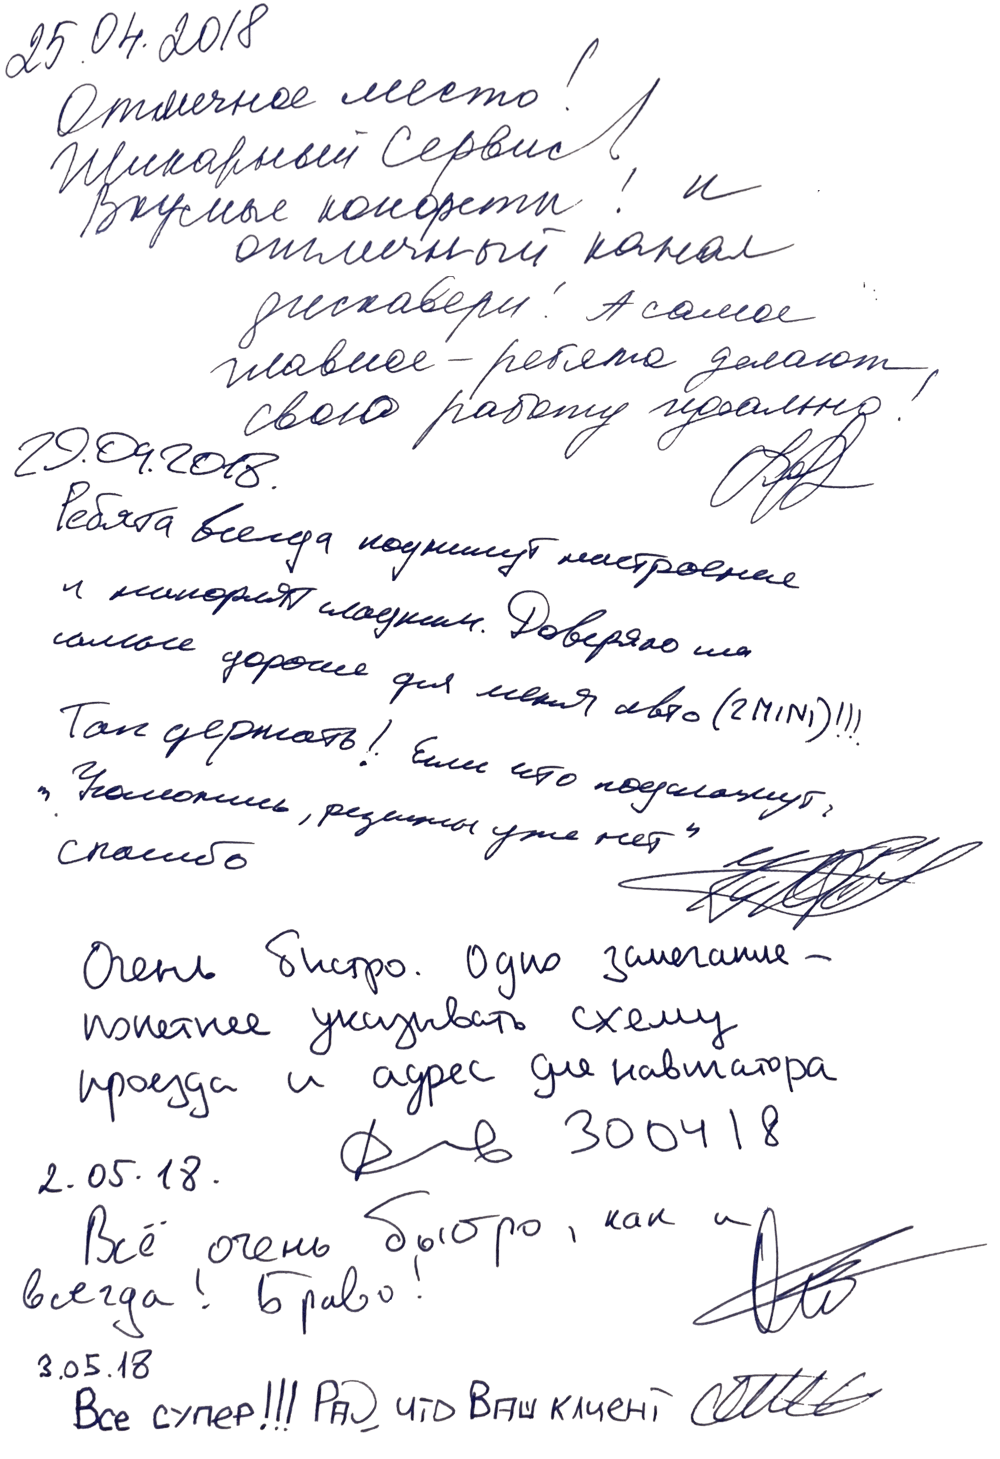 25.04.2018
Отличное место!
Шикарный Сервис!
Вкусные конфеты! и
отличный канал
дискавери! А самое
главное – ребята делают
свою работу идеально!
29.04.2018.
Ребята всегда поднимут настроение
и накормят сладким. Доверяю им
самые дорогие для меня авто (2 MINI)!!!
Так держать! Если что подскажут,
"Успокойся, резины уже нет"
спасибо
Очень быстро. Одно замечание –
понятнее указывать схему
проезда и адрес для навигатора
300418
2.05.18.
Всё очень быстро, как и
всегда! Браво!
3.05.18
Все супер!!! Рад, что Ваш клиент